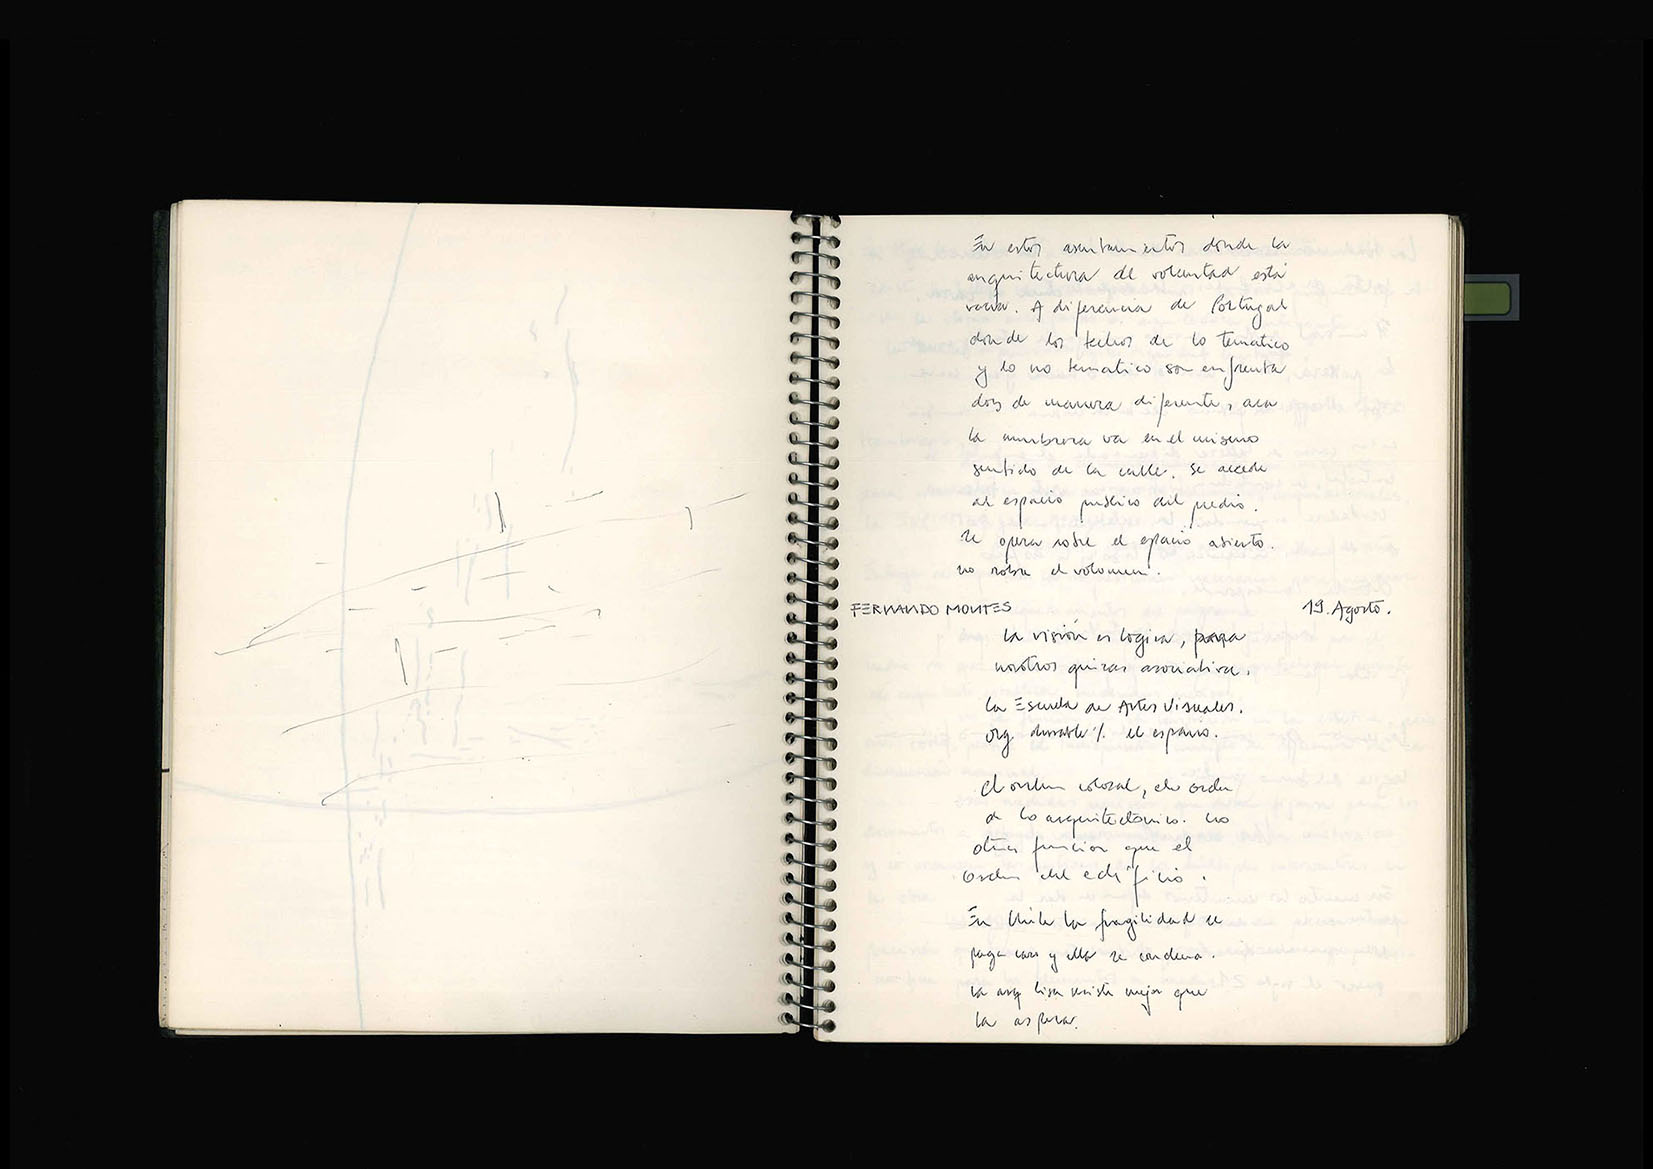 En estos asentamientos donde la
arquitectura de voluntad está
vacía. A diferencia de Portugal
donde los techos de lo tematico
y lo no tematico son enfrenta
dos de manera diferente, aca
la cumbrera va en el mismo
sentido de la calle. se accede
al espacio publico del predio.
se opera sobre el espacio abierto.
no sobre el volumen.
FERNANDO MONTES 19. Agosto.
la visión es logica, para
nosotros quizas asociativa.
La Escuela de Artes Visuales.
org durable % el espacio.
el orden colosal, el orden
de lo arquitectonico. no
otra funcion que el
orden del edificio.
En Chile la fragilidad se
paga caro y ella se condena.
la arq lisa resiste mejor que
la aspera.